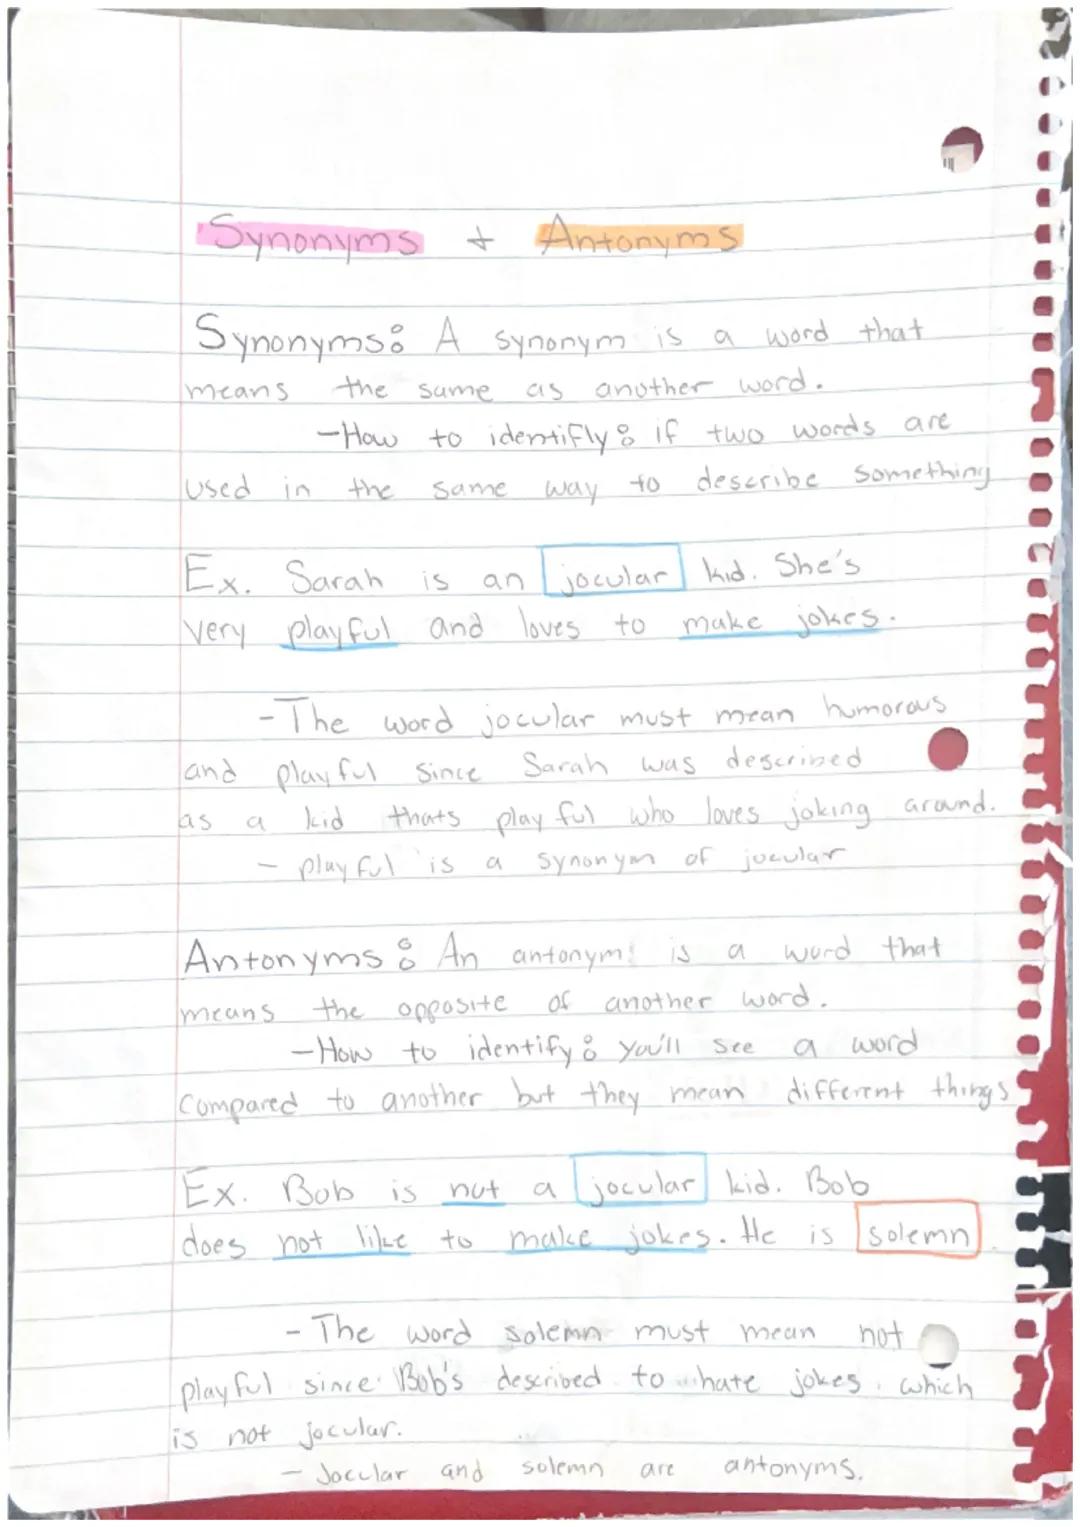 Synonyms + Antonyms
Synonyms: A synonym is a word that
means the same as another word.
-How to identifly: if two words are
used in the same way to describe something
Ex. Sarah is an jocular kid. She's
very playful and loves to make jokes.
-The word jocular must mean humorous
and playful since Sarah was described
as a kid thats playful who loves joking around.
- playful is a synonym of jocular
Antonyms: An antonym is a word that
means the opposite of another word.
-How to identify: you'll see a word
compared to another but they mean different things
Ex. Bob is not a jocular kid. Bob
does not like to make jokes. He is solemn.
- The word solemn must mean not
playful since Bob's described to hate jokes which
is not jocular.
- Jocular and solemn are antonyms.